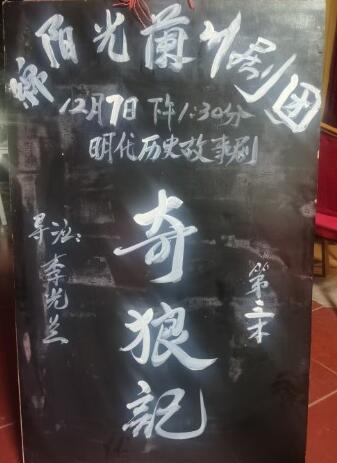 阳光蘭川剧团
12月7日下午1:30分
明代历史故事剧
奇狼記
导演:李光兰
第三本